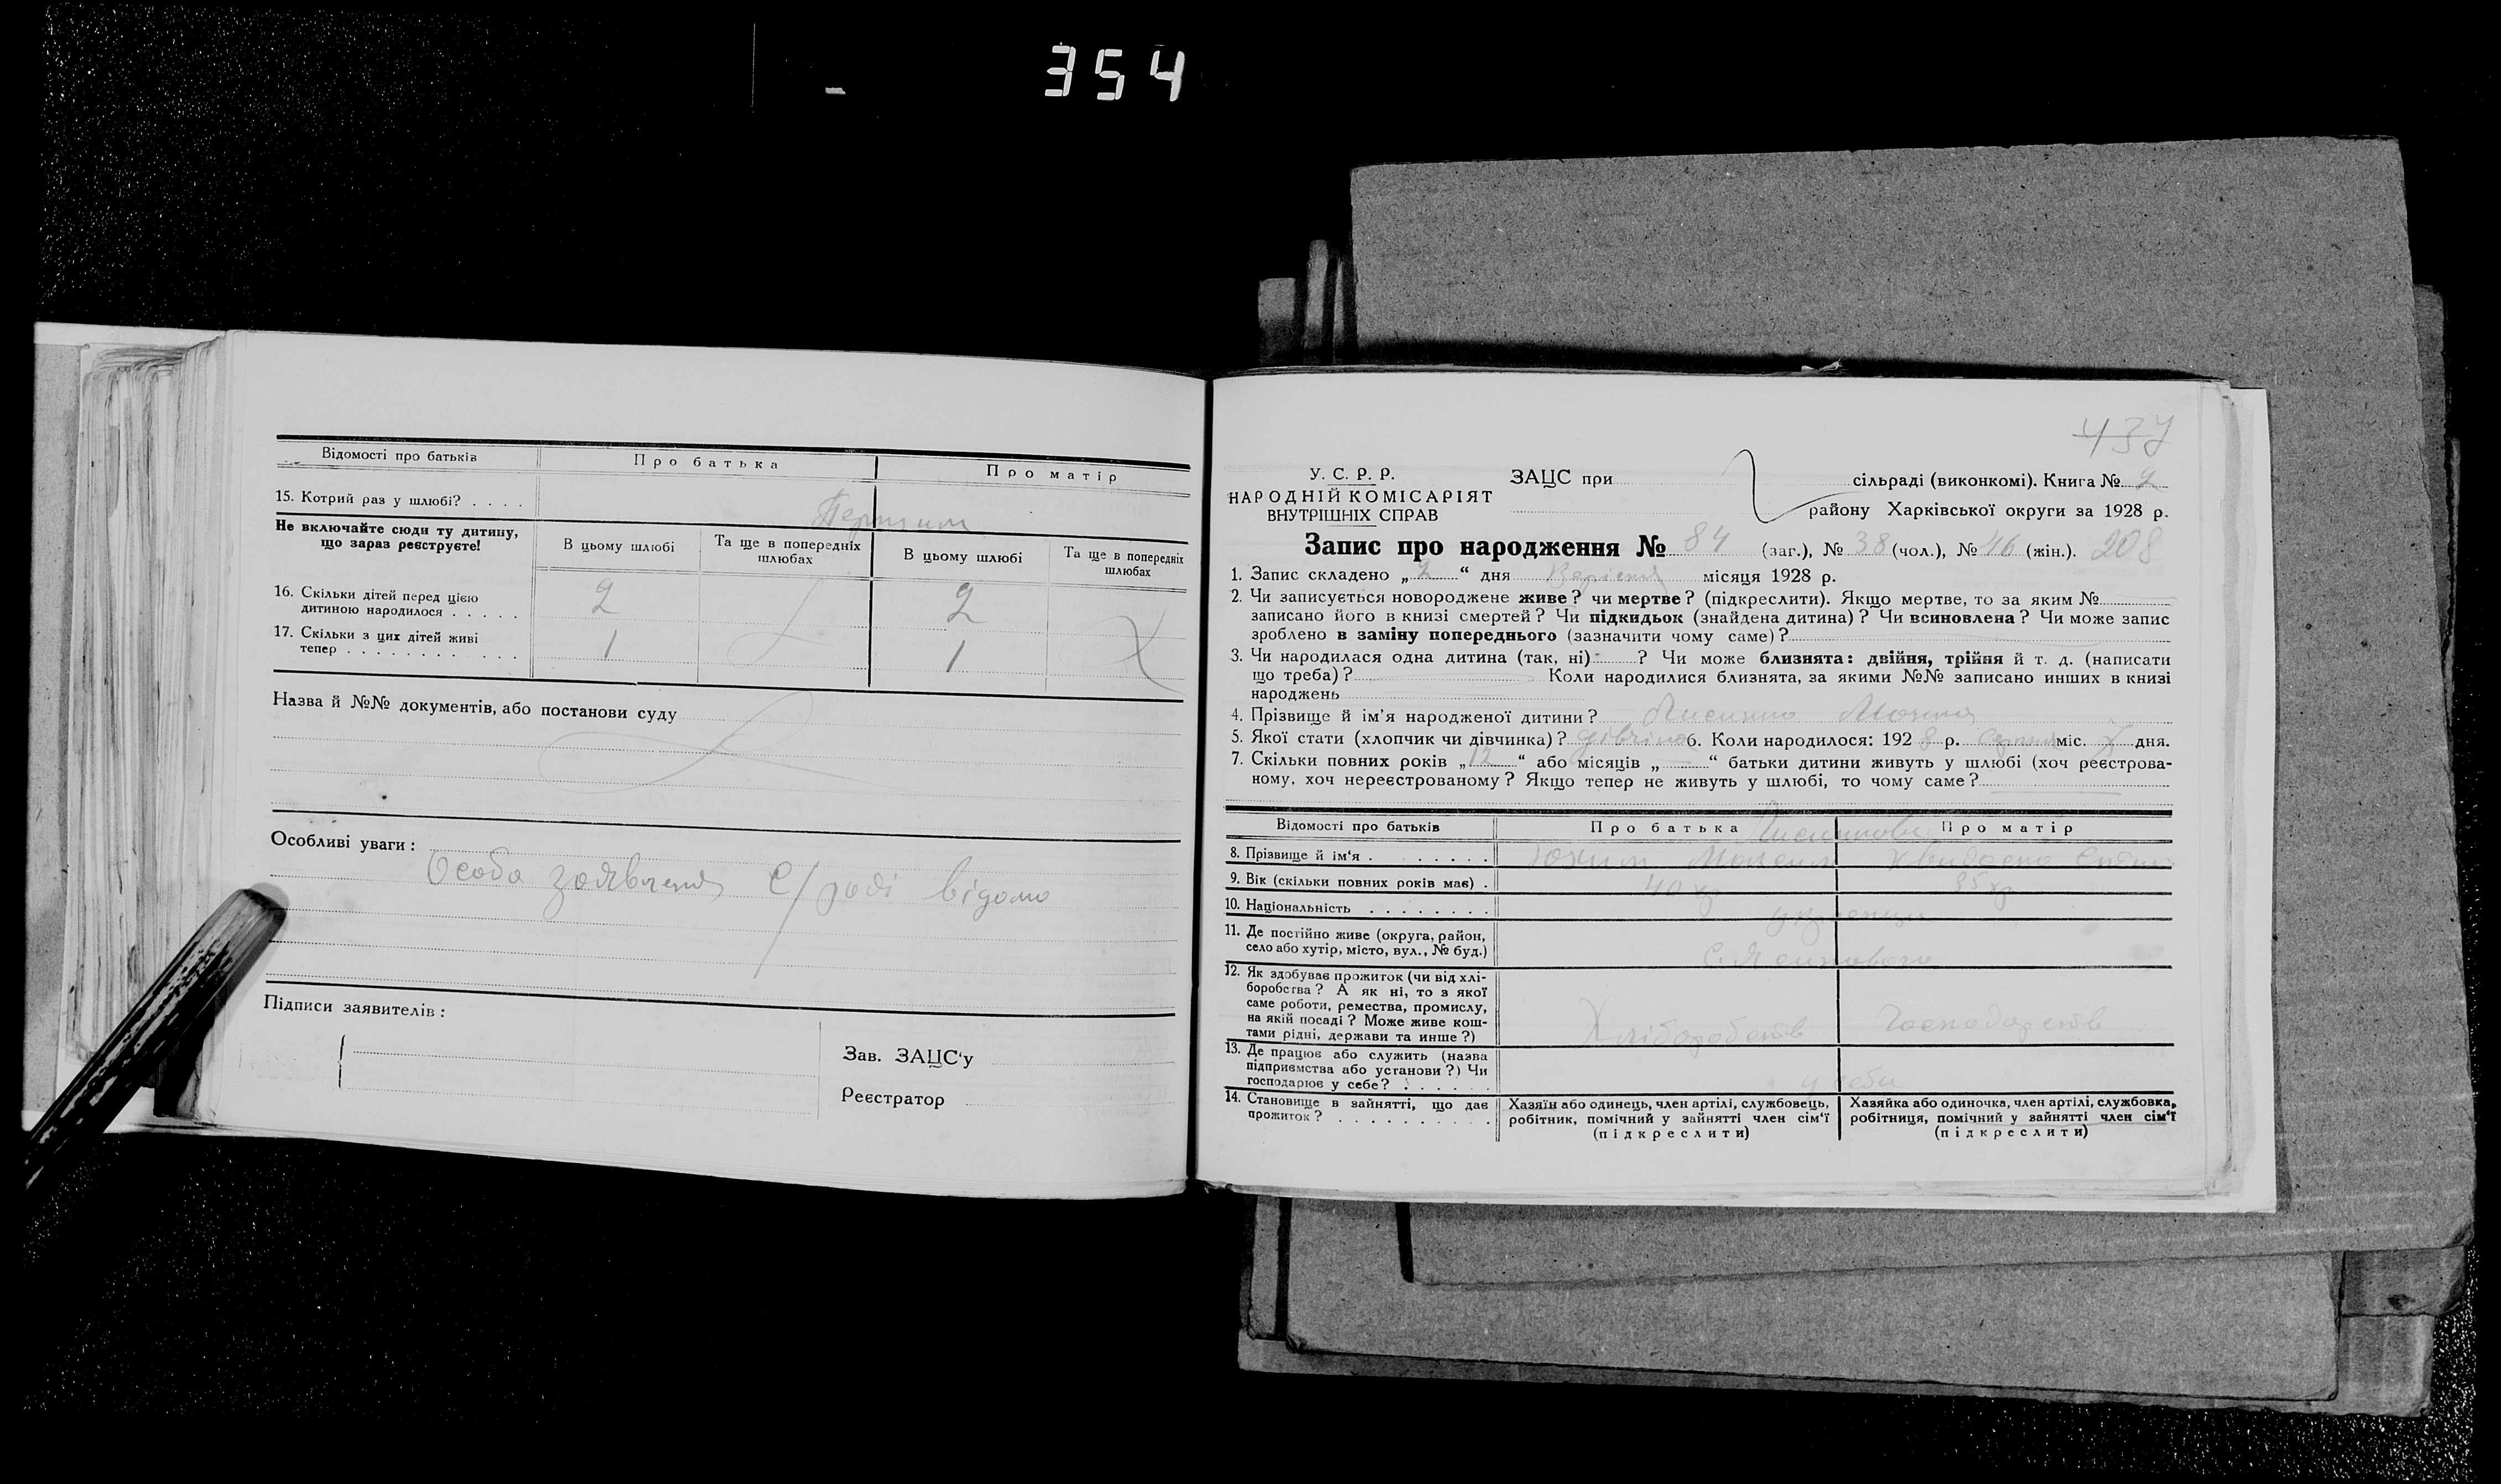 354
Відомості про батьків
Про батька
Про матір
15. Котрий раз у шлюбі? . . . .
Першим
Не включайте сюди ту дитину,
що зараз реєструєте!
В цьому шлюбі
Та ще в попередніх
шлюбах
В цьому шлюбі
Та ще в попередніх
шлюбах
16. Скільки дітей перед цією
дитиною народилося . . . . .
2
2
17. Скільки з цих дітей живі
тепер . . . . . . . . . . .
1
1
Назва й №№ документів, або постанови суду
Особливі уваги :
Особа С/раді відомо
Підписи заявителів :
Зав. ЗАЦС‘у
Реєстратор
437
У. С. Р. Р.
НАРОДНІЙ КОМІСАРІЯТ
ВНУТРІШНІХ СПРАВ
ЗАЦС при сільраді (виконкомі). Книга № 2
району Харківської округи за 1928 р.
Запис про народження № 84 (заг.), № 38 (чол.), № 46 (жін.). 208
1. Запис складено „ 2 “ дня Вересня місяця 1928 р.
2. Чи записується новороджене живе? чи мертве? (підкреслити). Якщо мертве, то за яким №
записано його в книзі смертей? Чи підкидьок (знайдена дитина)? Чи всиновлена? Чи може запис
зроблено в заміну попереднього (зазначити чому саме)?
3. Чи народилася одна дитина (так, ні) ? Чи може близнята: двійня, трійня й т. д. (написати
що треба)? Коли народилися близнята, за якими №№ записано инших в книзі
народжень
4. Прізвище й ім’я народженої дитини?
5. Якої стати (хлопчик чи дівчинка)? дівчина 6. Коли народилося: 192 8 р. Серпня міс. дня.
7. Скільки повних років „ 12 “ або місяців „ “ батьки дитини живуть у шлюбі (хоч реєстрова-
ному, хоч нереєстрованому? Якщо тепер не живуть у шлюбі, то чому саме?
Відомості про батьків
Про батька
Про матір
8. Прізвище й ім‘я . . . . . . . .
9. Вік (скільки повних років має) .
40
35
10. Національність . . . . . . . .
11. Де постійно живе (округа, район,
село або хутір, місто, вул., № буд.)
12. Як здобуває прожиток (чи від хлі-
боробства? А як ні, то з якої
саме роботи, ремества, промислу,
на якій посаді? Може живе кош-
тами рідні, держави та инше?)
Хліборобств
Господарств
13. Де працює або служить (назва
підприємства або установи?) Чи
господарює у себе? . . . . . .
у себе
14. Становище в зайнятті, що дає
прожиток? . . . . . . . . . .
Хазяїн або одинець, член артілі, службовець,
робітник, помічний у зайнятті член сім‘ї
(підкреслити)
Хазяйка або одиночка, член артілі, службовка,
робітниця, помічний у зайнятті член сім‘ї
(підкреслити)